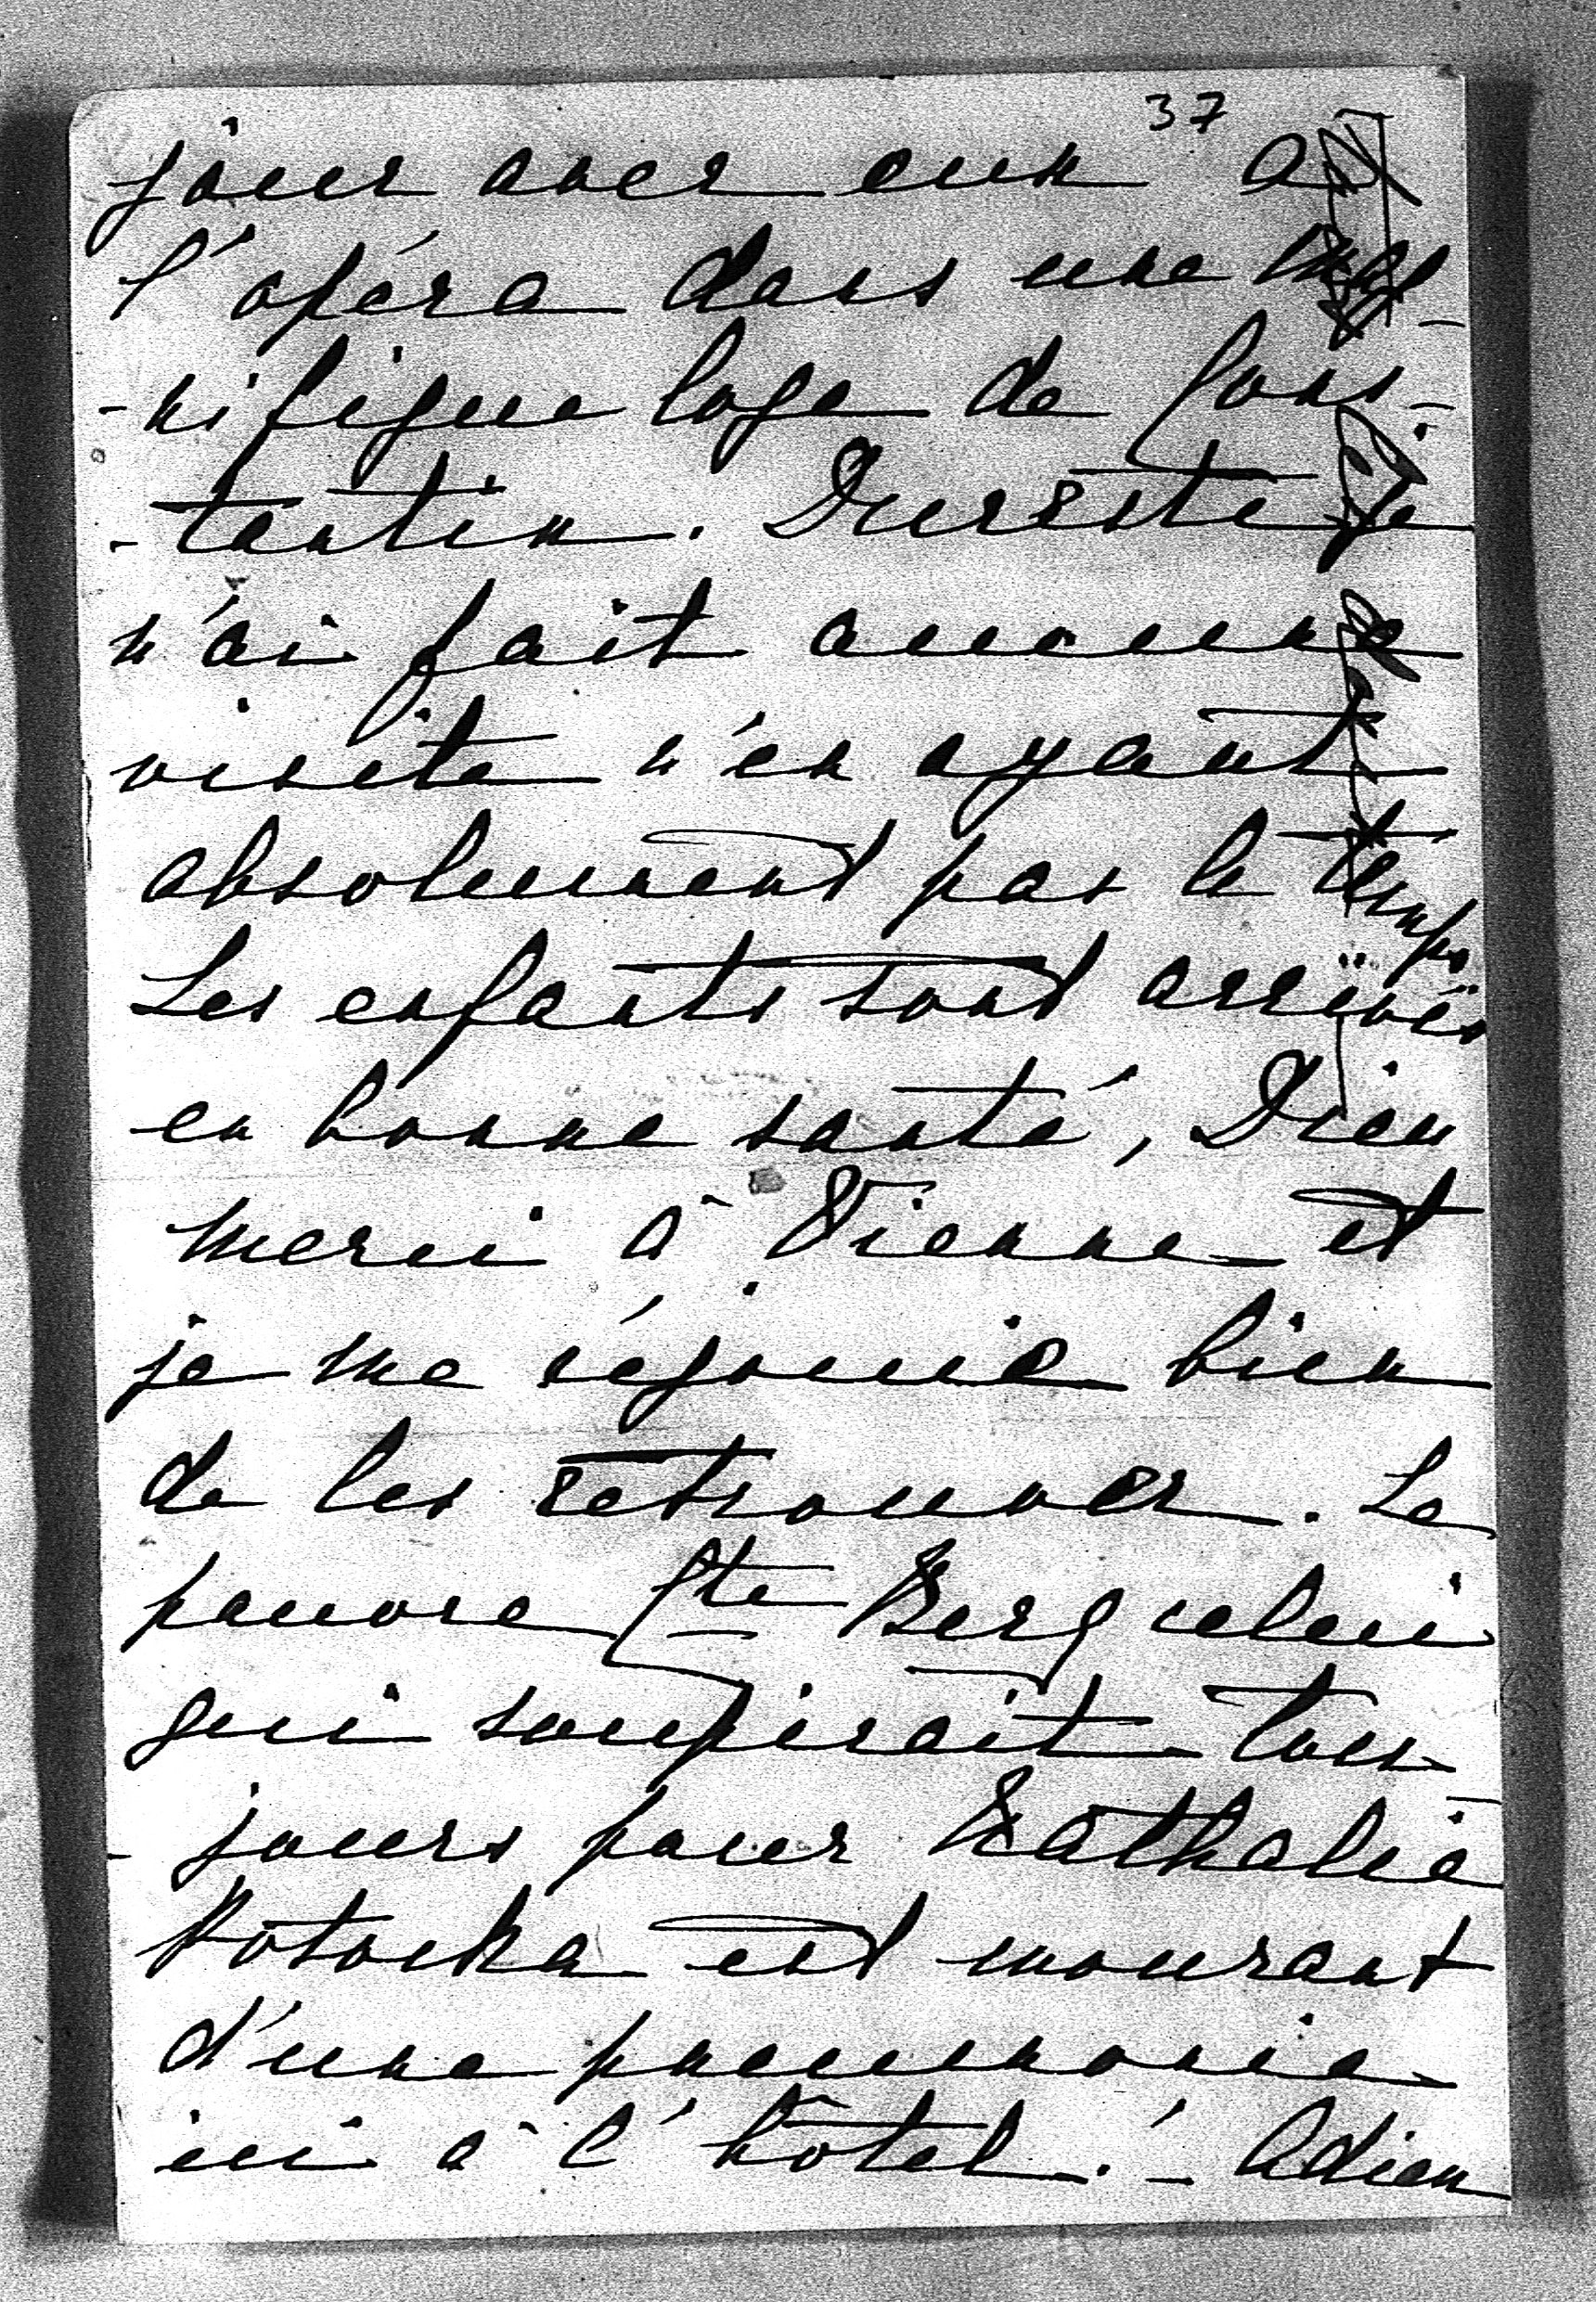 37
jour avec eux à
l'opéra dans une mag-
-nifique loge de Cons-
-tantin. Dureste je
n'ai fait aucune
visite n'en ayant
absolument pas le temps
Les enfants sont arrivés
en bonne santé, Dieu
merci à Vienne et
je me réjouie bien
de les retrouver. Le
pauvre Cte Berg celui
qui soupirait tou-
-jours pour Nathalie
Potocka est mourant
d'une pneumonie
ici à l'hôtel. - Adieu